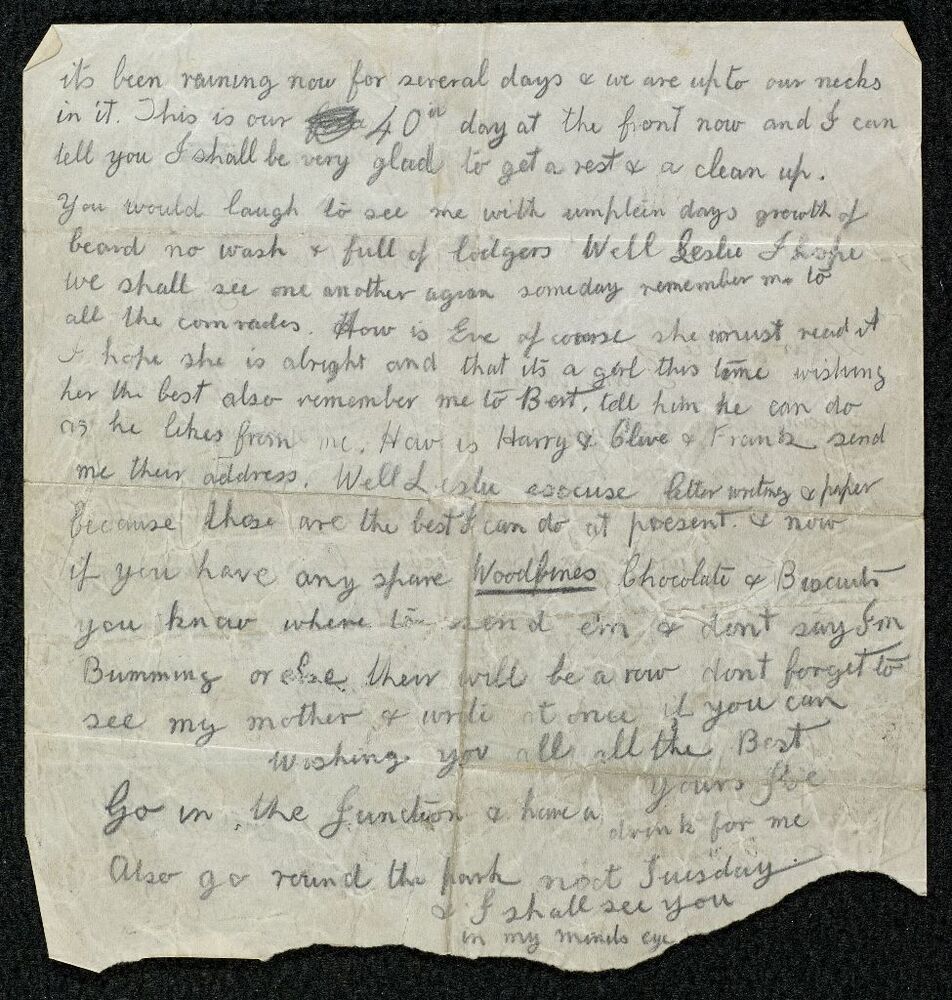 its been raining now for several days & we are up to our necks
in it. This is our 40th day at the front now and I can
tell you I shall be very glad to get a rest & a clean up.
You would laugh to see me with umptein days growth of
beard no wash & full of lodgers Well Leslie I hope
we shall see one another agian someday remember me to
all the comrades. How is Eve of course she must read it
I hope she is alright and that its a girl this time wishing
her the best also remember me to Bert, tell him he can do
as he likes from me. How is Harry & Clive & Frank send
me their address. Well Leslie excuse letter writing & paper
Because these are the best I can do at present. & now
if you have any spare Woodbines Chocolate & Biscuits
you know where to send em & dont say Im
Bumming or else their will be a row dont forget to
see my mother & write at once if you can
Wishing you all all the Best
Yours
Go in the Junction & have a
drink for me
Also go round the park next Tuesday
& I shall see you
in my minds eye